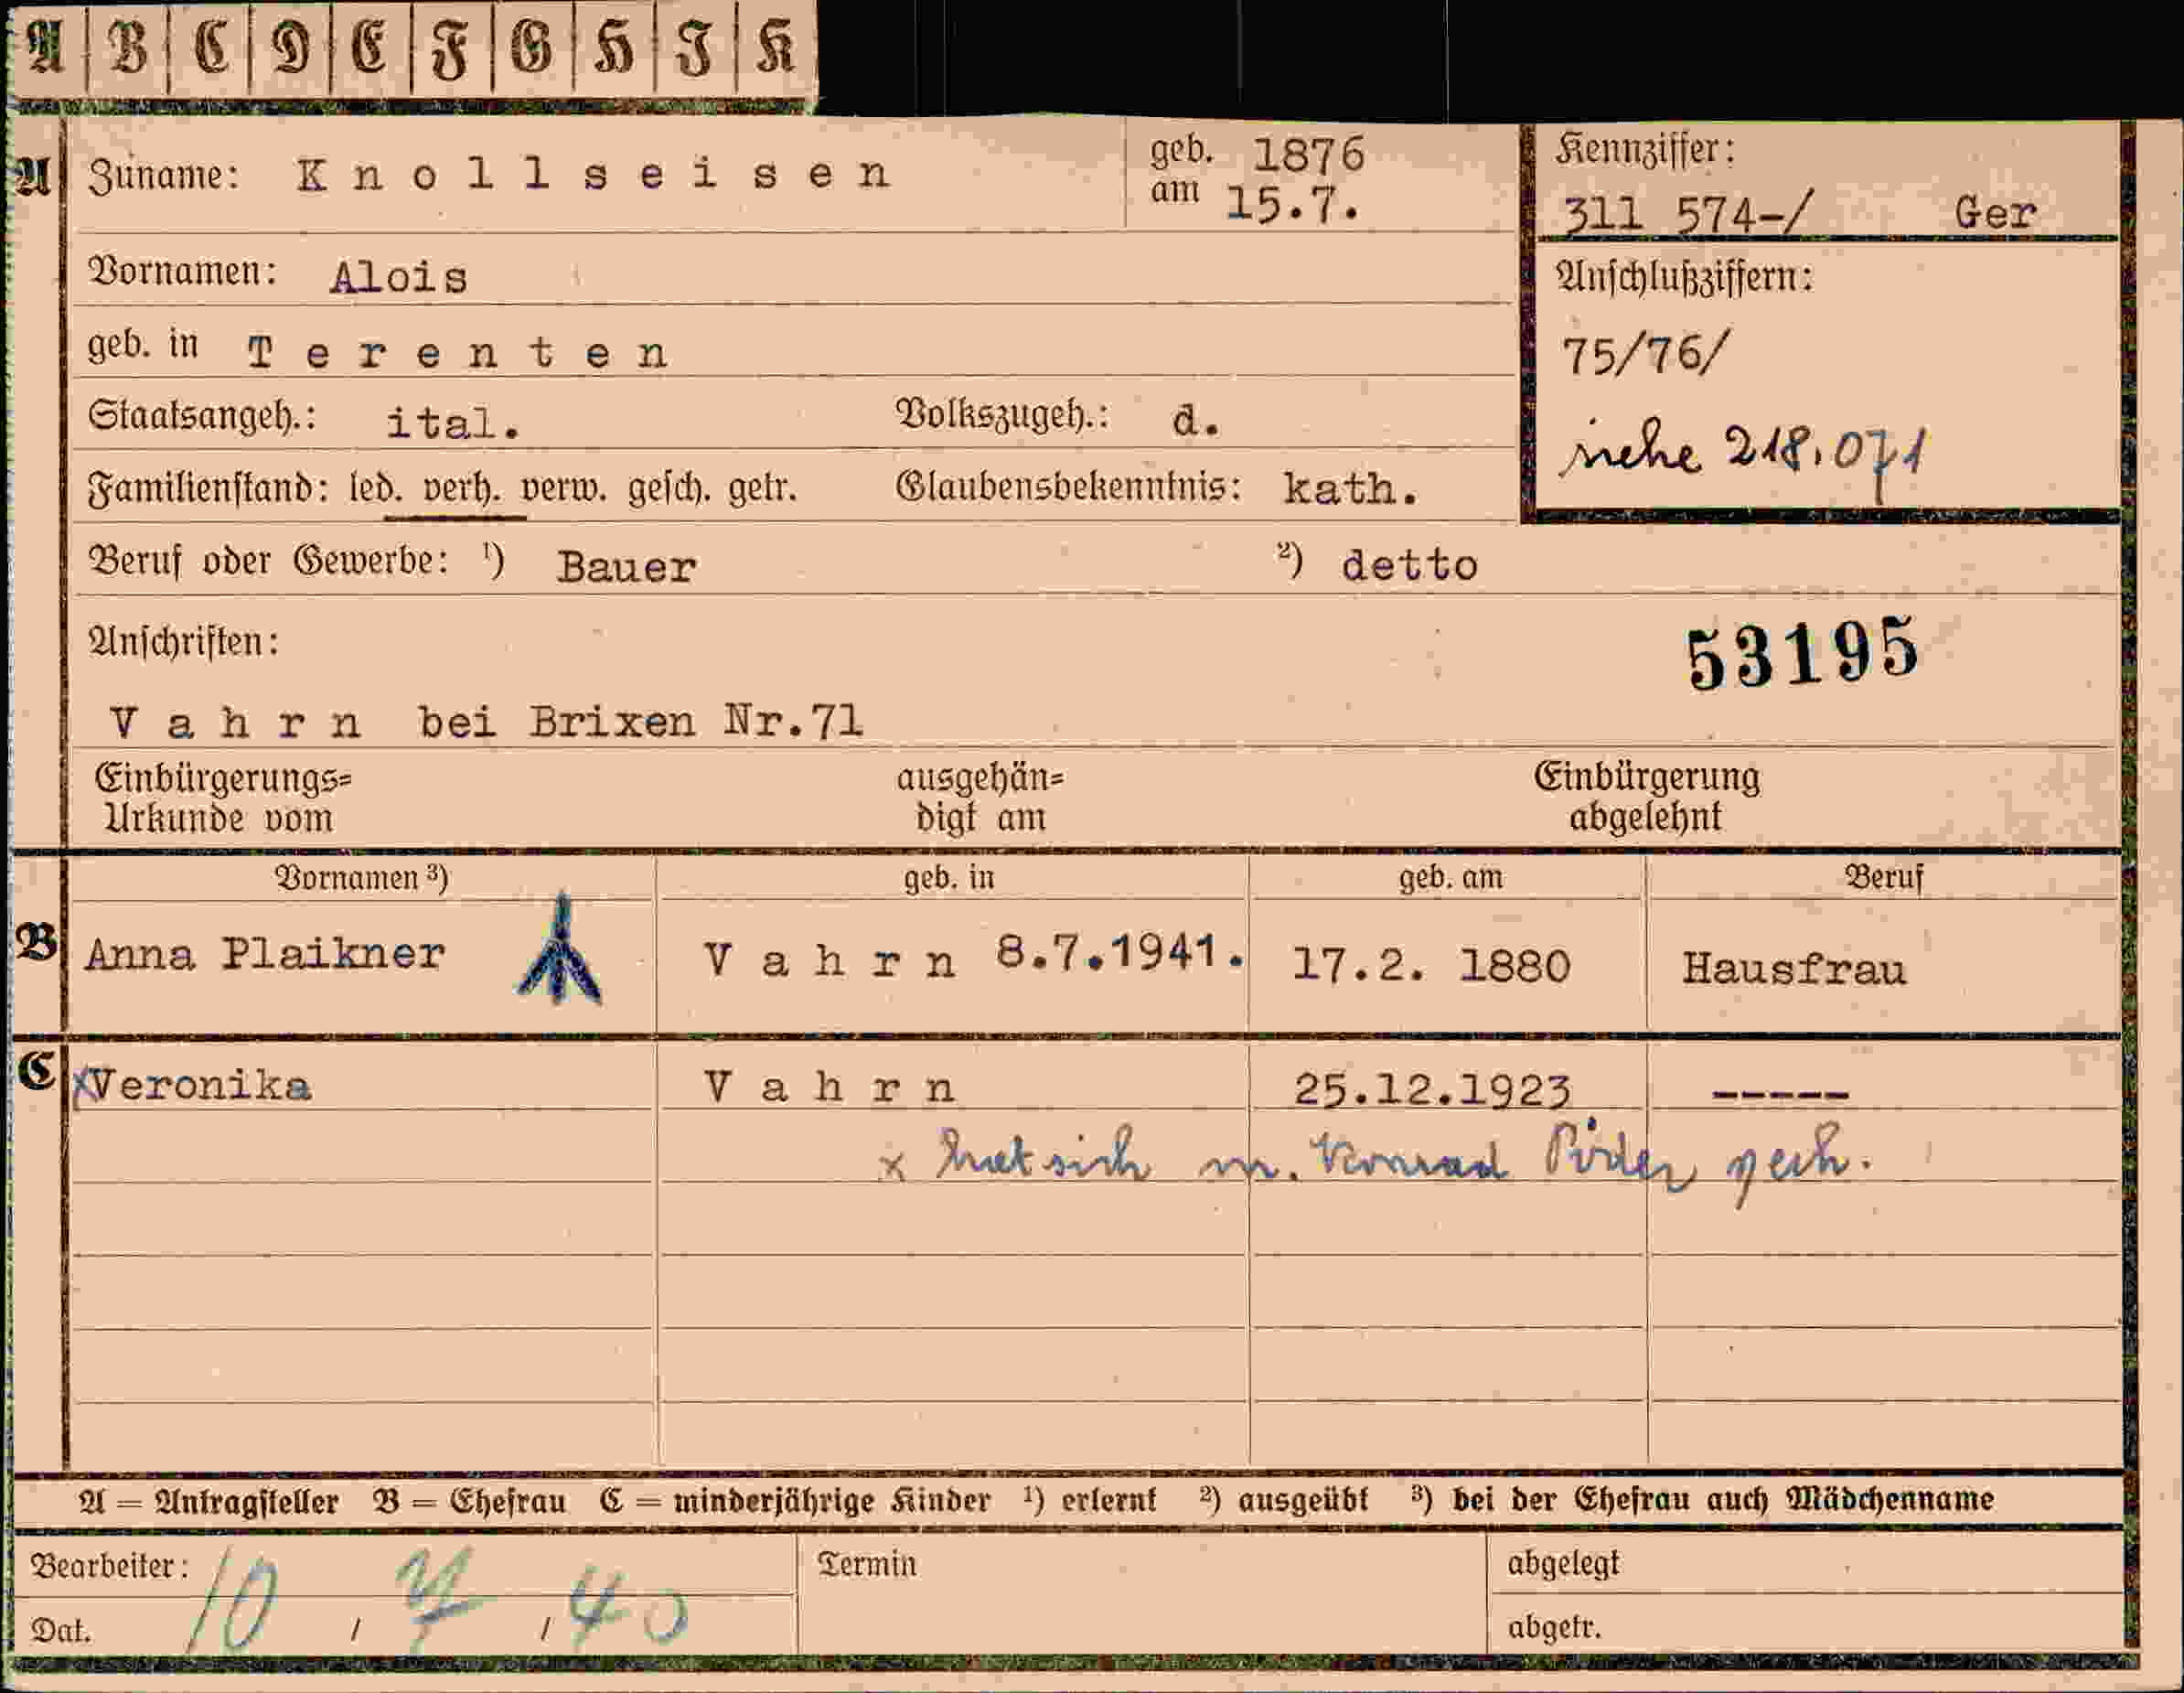 A B C D E F G H J K
A Zuname: Knollseisen geb. 1876
am 15.7.
Kennziffer:
311 574-/ Ger
Vornamen: Alois
Anschlußziffern:
geb. in Terenten
75/76/
Staatsangeh.: ital. Volkszugeh.: d.
siehe 218.071
Familienstand: led. verh. verw. gesch. getr. Glaubensbekenntnis: kath.
Beruf oder Gewerbe: ¹) Bauer ²) detto
Anschriften:
53195
Vahrn bei Brixen Nr.71
Einbürgerungs= ausgehän= Einbürgerung
Urkunde vom digt am abgelehnt
Vornamen ³) geb. in geb. am Beruf
B Anna Plaikner Vahrn 8.7.1941. 17.2. 1880 Hausfrau
C xVeronika Vahrn 25.12.1923 -----
x hat sich m. Konrad
A = Antragsteller B = Ehefrau C = minderjährige Kinder ¹) erlernt ²) ausgeübt ³) bei der Ehefrau auch Mädchenname
Bearbeiter: Termin abgelegt
Dat. 10 / / 40 abgetr.